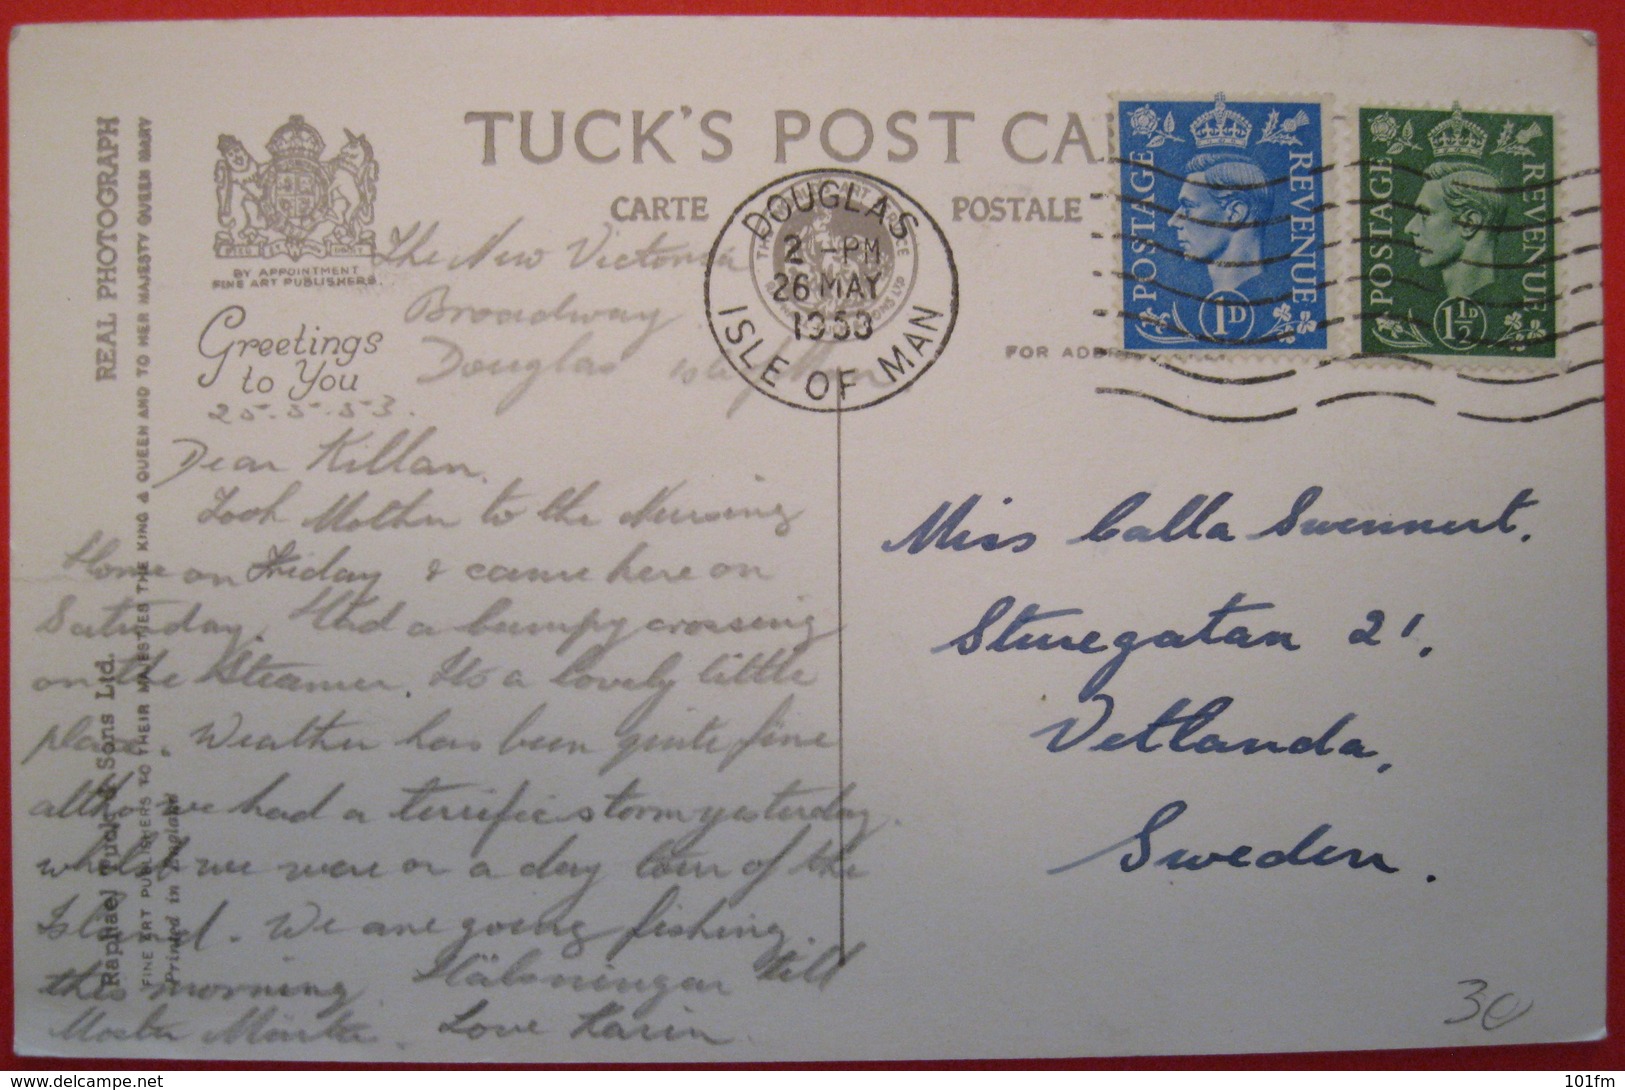 TUCK'S POST CA
CARTE POSTALE
REAL PHOTOGRAPH
BY APPOINTMENT
FINE ART PUBLISHERS.
Greetings
to You
25.5.53.
The New Victoria
Broadway
Douglas Isle of Man
Dear Killan.
Took Mother to the Nursing
Home on Friday & came here on
Saturday. Had a bumpy crossing
on the Steamer. Its a lovely little
place. Weather has been quite fine
altho we had a terrific storm yesterday
whilst we were on a day tour of the
Island. We are going fishing
this morning. Hälsningar till
Moster Märta. Love Karin.
Raphael Tuck & Sons Ltd.
FINE ART PUBLISHERS TO THEIR MAJESTIES THE KING & QUEEN AND TO HER MAJESTY QUEEN MARY
Printed in England
DOUGLAS
2 - PM
26 MAY
1953
ISLE OF MAN
POSTAGE REVENUE
1D
POSTAGE REVENUE
1½D
FOR ADD
Miss Calla Swennert.
Sturegatan 21.
Vetlanda,
Sweden.
30
101fm